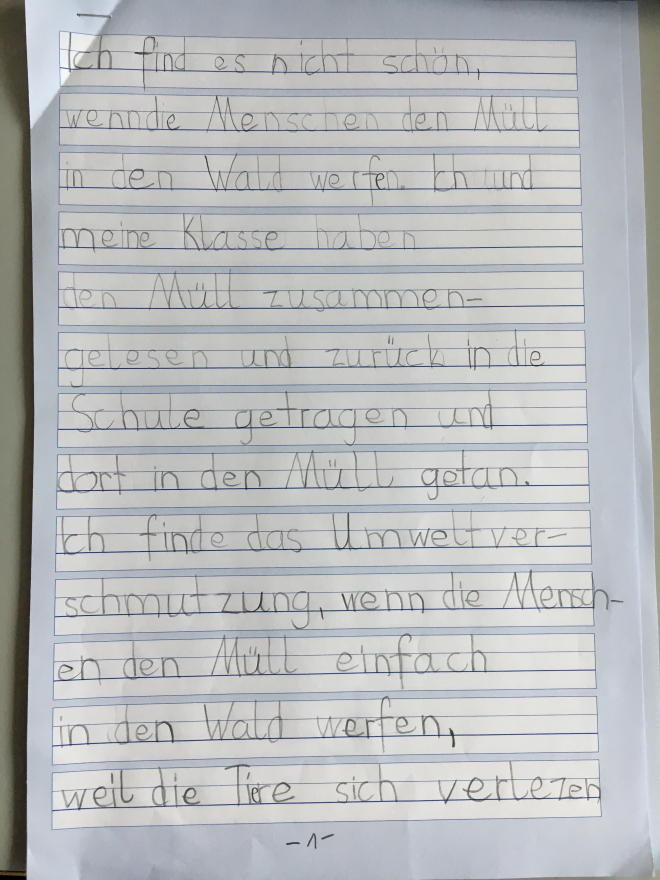 Ich find es nicht schön,
wenn die Menschen den Müll
in den Wald werfen. Ich und
meine Klasse haben
den Müll zusammen-
gelesen und zurück in die
Schule getragen und
dort in den Müll getan.
Ich finde das Umweltver-
schmutzung, wenn die Mensch-
en den Müll einfach
in den Wald werfen,
weil die Tiere sich verlezen
-1-